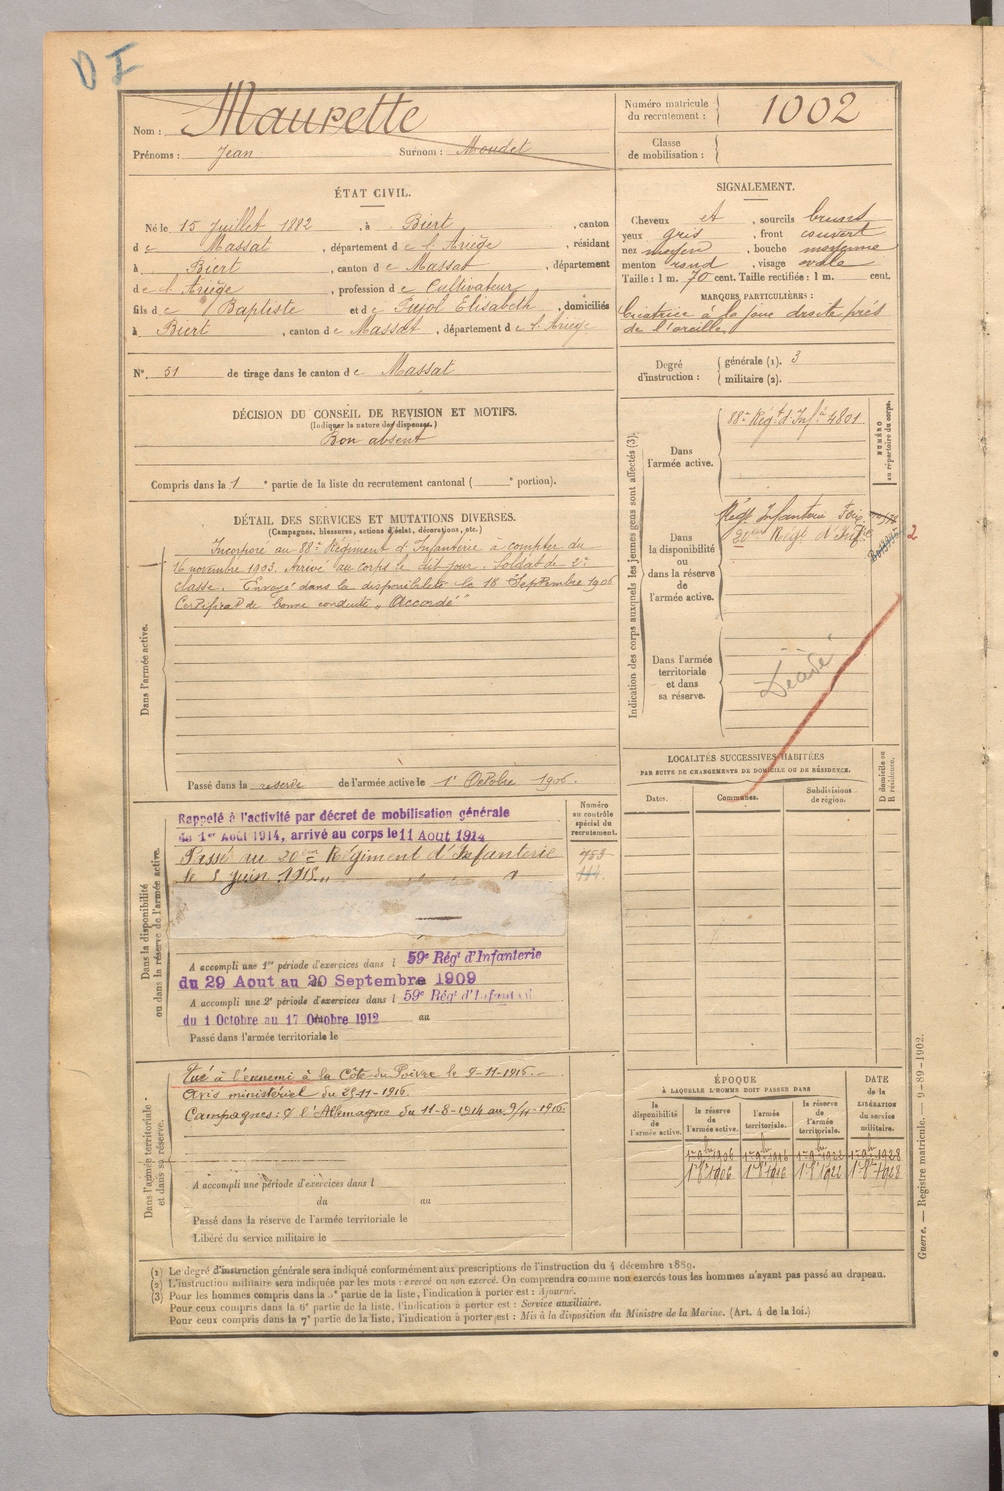 DI
Nom : Maurette
Prénoms : Jean Surnom : Moudet
Numéro matricule du recrutement : 1002
Classe de mobilisation :
ÉTAT CIVIL.
Né le 15 Juillet 1882, à Biert, canton
de Massat, département de l'Ariège, résidant
à Biert, canton de Massat, département
de l'Ariège, profession de Cultivateur
fils de Baptiste et de Pujol Elisabeth, domiciliés
à Biert, canton de Massat, département de l'Ariège
N° 51 de tirage dans le canton de Massat
SIGNALEMENT.
Cheveux et, sourcils bruns
yeux gris, front couvert
nez moyen, bouche moyenne
menton rond, visage ovale
Taille : 1 m. 70 cent. Taille rectifiée : 1 m. cent.
MARQUES PARTICULIÈRES :
Cicatrice à la joue droite près
de l'oreille
Degré d'instruction : générale (1). 3
militaire (2).
DÉCISION DU CONSEIL DE REVISION ET MOTIFS.
(Indiquer la nature des dispenses.)
Bon absent
Compris dans la 1e partie de la liste du recrutement cantonal ( e portion).
DÉTAIL DES SERVICES ET MUTATIONS DIVERSES.
(Campagnes, blessures, actions d'éclat, décorations, etc.)
Dans l'armée active.
Incorporé au 88e Régiment d'Infanterie à compter du
16 novembre 1903. Arrivé au corps le dit jour. Soldat de 2e
classe. Envoyé dans la disponibilité le 18 Septembre 1906
Certificat de bonne conduite "Accordé"
Passé dans la réserve de l'armée active le 1er Octobre 1906.
Indication des corps auxquels les jeunes gens sont affectés (3).
NUMÉRO au répertoire du corps.
Dans l'armée active.
88e Régt d'Infie 4801
Dans la disponibilité ou dans la réserve de l'armée active.
Régt Infanterie Foix
20ème Régt d'Infie
2
Dans l'armée territoriale et dans sa réserve.
Décédé
LOCALITÉS SUCCESSIVES HABITÉES
PAR SUITE DE CHANGEMENTS DE DOMICILE OU DE RÉSIDENCE.
D domicile ou R résidence.
Dates. Communes. Subdivisions de région.
Dans la disponibilité ou dans la réserve de l'armée active.
Numéro au contrôle spécial du recrutement.
Rappelé à l'activité par décret de mobilisation générale
du 1er Août 1914, arrivé au corps le 11 Août 1914
Passé au 20ème Régiment d'Infanterie
le 5 juin 1915
753
A accompli une 1re période d'exercices dans l 59e Régt d'Infanterie
du 29 Aout au 20 Septembre 1909
A accompli une 2e période d'exercices dans l 59e Régt d'Infanterie
du 1 Octobre au 17 Octobre 1912 au
Passé dans l'armée territoriale le
Dans l'armée territoriale et dans sa réserve.
Tué à l'ennemi à la Côte du Poivre le 9-11-1916.
Avis ministériel du 25-11-1916.
Campagnes : C/ l'Allemagne du 11-8-1914 au 9/11-1916.
A accompli une période d'exercices dans l
du au
Passé dans la réserve de l'armée territoriale le
Libéré du service militaire le
ÉPOQUE
À LAQUELLE L'HOMME DOIT PASSER DANS
la disponibilité de l'armée active.
la réserve de l'armée active.
l'armée territoriale.
la réserve de l'armée territoriale.
DATE de la LIBÉRATION du service militaire.
1er 9bre 1906 1er 9bre 1916 1er 9bre 1922 1er 9bre 1928
1er 8bre 1906 1er 8bre 1916 1er 8bre 1922 1er 8bre 1928
(1) Le degré d'instruction générale sera indiqué conformément aux prescriptions de l'instruction du 4 décembre 1889.
(2) L'instruction militaire sera indiquée par les mots : exercé ou non exercé. On comprendra comme non exercés tous les hommes n'ayant pas passé au drapeau.
(3) Pour les hommes compris dans la 5e partie de la liste, l'indication à porter est : Ajourné.
Pour ceux compris dans la 6e partie de la liste, l'indication à porter est : Service auxiliaire.
Pour ceux compris dans la 7e partie de la liste, l'indication à porter est : Mis à la disposition du Ministre de la Marine. (Art. 4 de la loi.)
Guerre. — Registre matricule. — 9-89-1902.